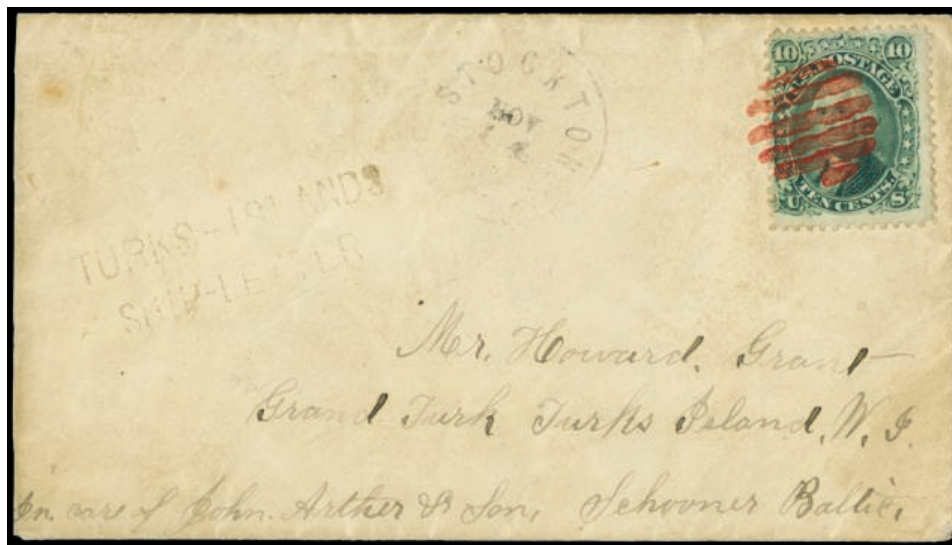 STOCKTON
NOV
10 10
U.S. POSTAGE
TEN CENTS.
U S
TURKS-ISLANDS
SHIP-LETTER
Mr. Howard. Grant
Grand Turk Turks Island, W. I.
In care of John. Arther & Son, Schooner Baltic,